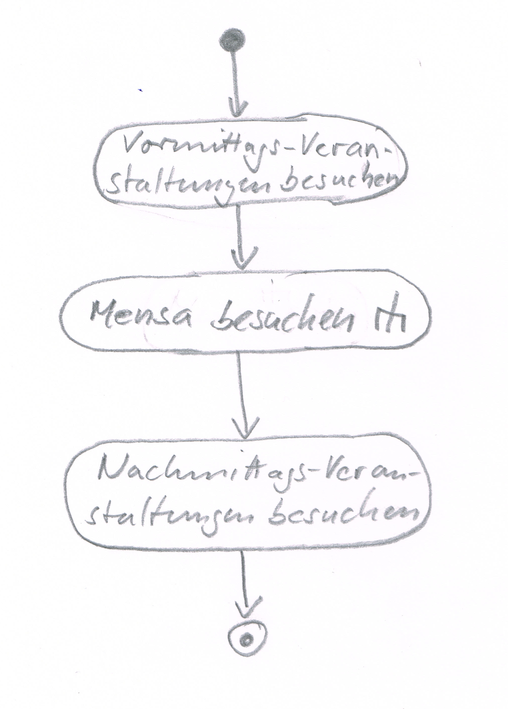 Vormittags-Veran-
staltungen besuchen
Mensa besuchen
Nachmittags-Veran-
staltungen besuchen